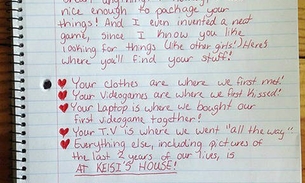 nice enough to package your
things! And I even invented a neat
game, since I know you like
looking for things like other girls! Here's
where you'll find your stuff!
Your clothes are where we first met!
Your Videogames are where we first kissed!
Your Laptop is where we bought our
first videogame together!
Your T.V is where we went "all the way"
Everything else, including pictures of
the last 2 years of our lives, is
AT KEISI'S HOUSE!